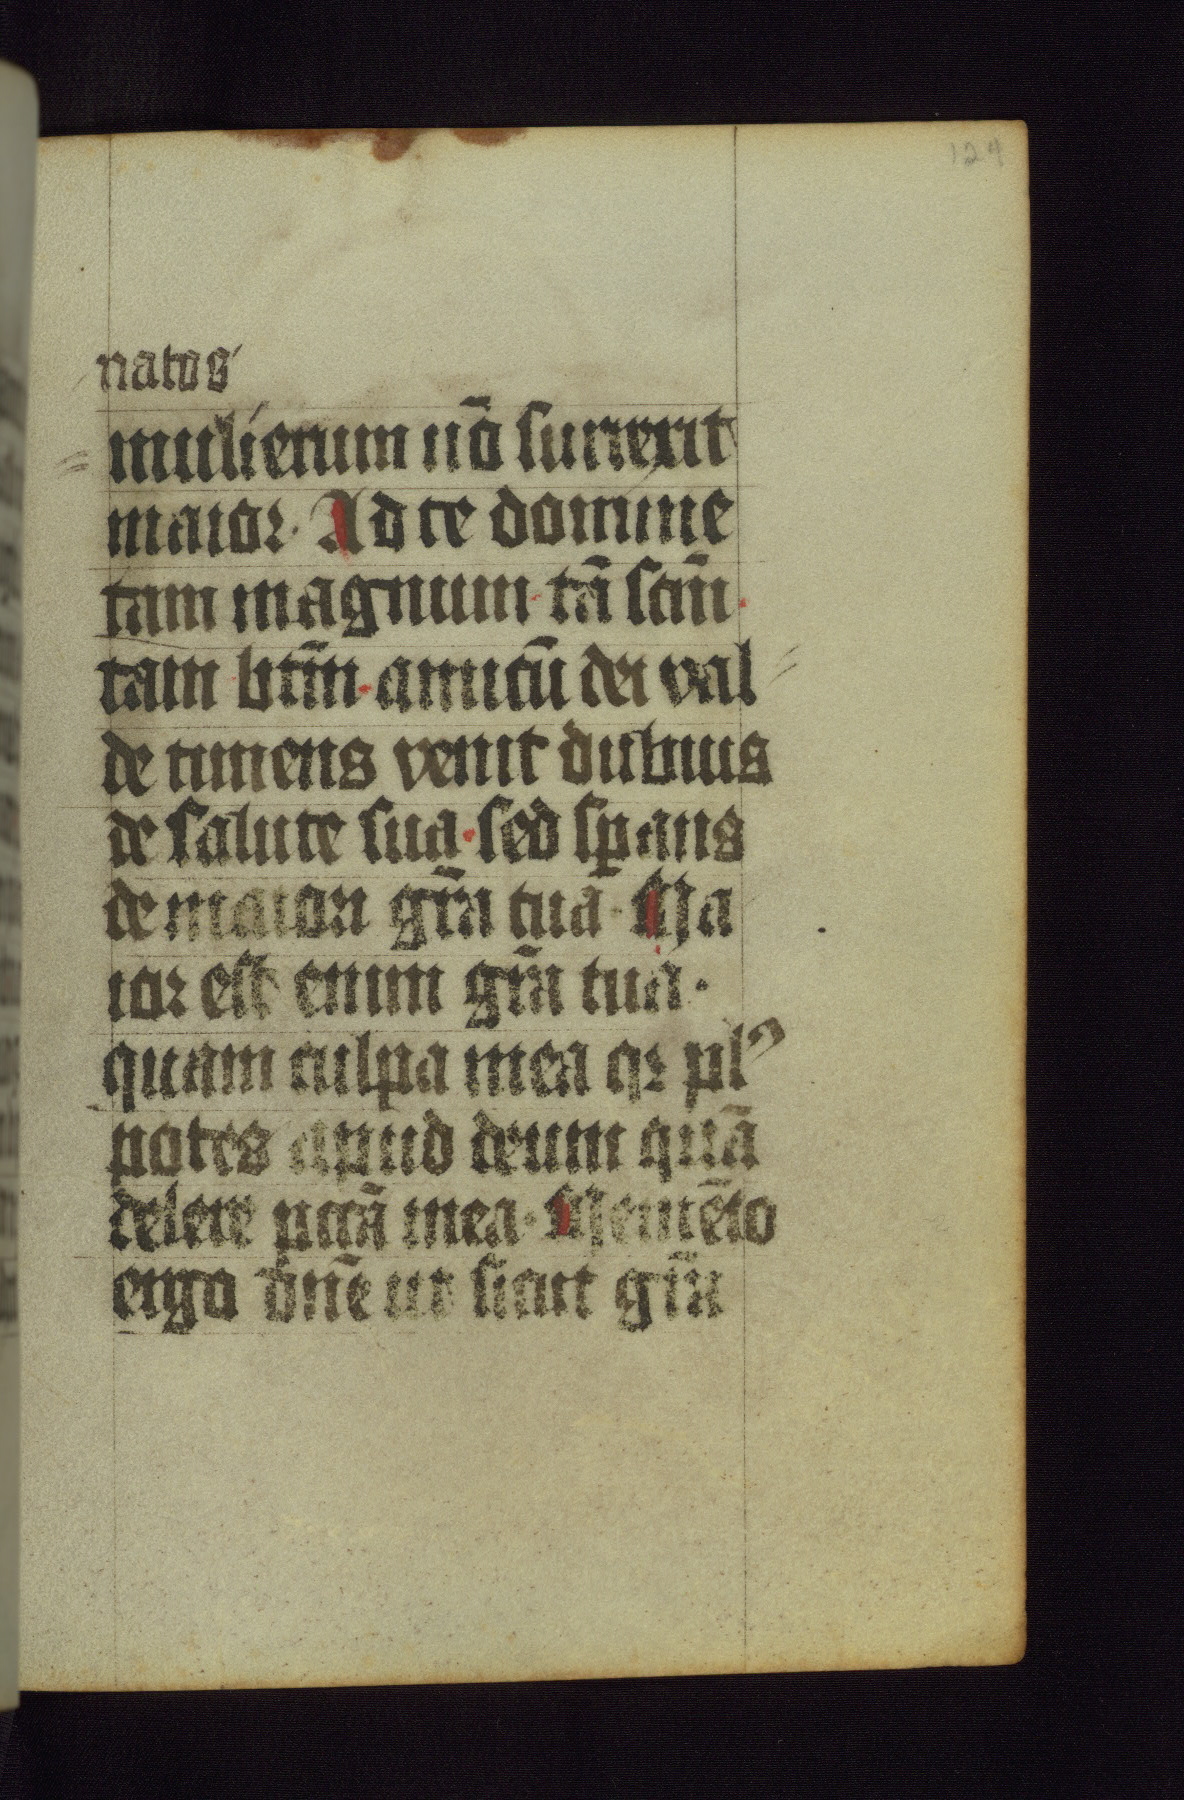 124
natos
mulierum nō surrexit
maior. Ad te domine
tam magnum tā scm̄
tam btm̄ amicū dei val
de timens venit dubius
de salute sua. sed spans
de maiori grā tua. Ma
ior est enim grā tua.
quam culpa mea qr pl9
potes apud deum quā
delere pccā mea. Memēto
ergo dn̄e ut sicut grā